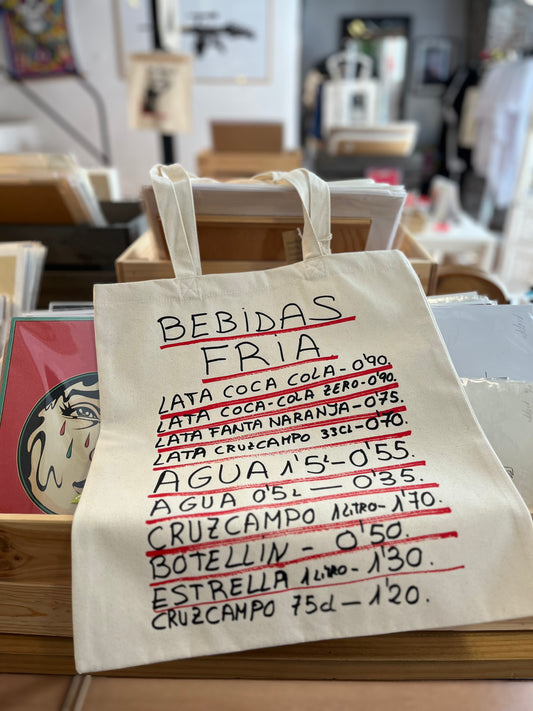 BEBiDAS
FRiA
LATA COCA COLA - 0'90.
LATA COCA-COLA ZERO - 0'90.
LATA FANTA NARANJA - 0'75.
LATA CRUZCAMPO 33cl - 0'70.
AGUA 1'5L - 0'55.
AGUA 0'5L — 0'35.
CRUZCAMPO 1LiTRO - 1'70.
BOTELLiN - 0'50.
ESTRELLA 1LiTRO - 1'30.
CRUZCAMPO 75cl - 1'20.